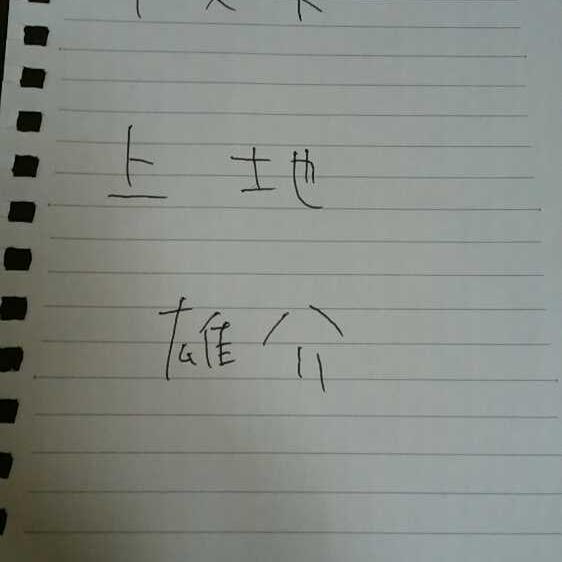 上地
雄介